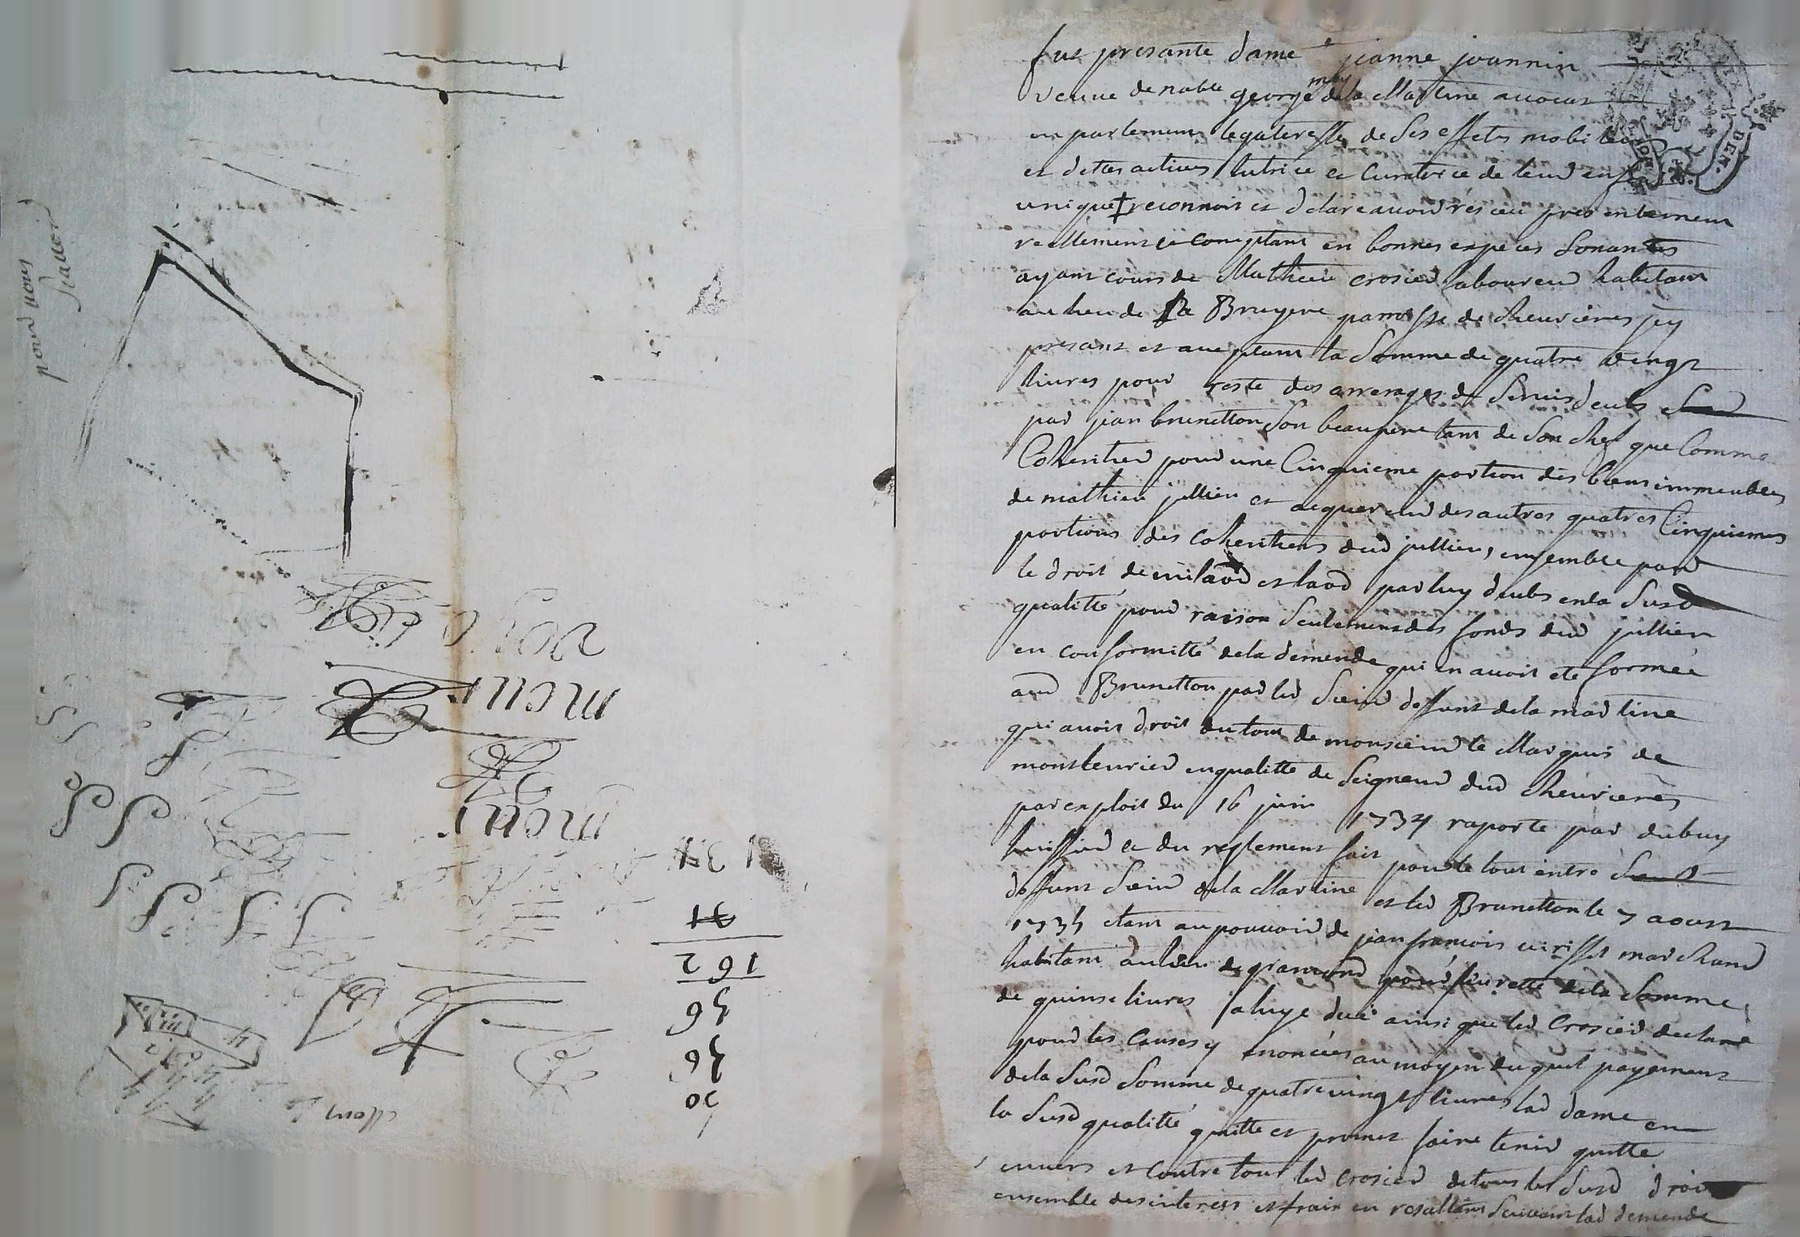 pour nous
mon
mon
1 34
31
162
56
56
50
fut presante dame jeanne joannin
veuve de noble george mry dela Martine avocat
en parlement legateresse de ses effets mobiliers
et dettes actives tutrice et curatrice de leur enfant
unique † reconnoit et declare avoir reseu presentement
reellement et comptant en bonnes especes sonantes
ayant cours de Mathieu crosier laboureur habitant
au lieu de la Bruyere parroisse de chevrieres jcy
presant et aceptant la somme de quatre vingt
livres pour reste des arrerages de servis deubs
par jean brunetton son beaupere tant de son chef que comme
Coheritier pour une Cinquieme portion des biens immeubles
de mathieu jullien et acquereur des autres quatres Cinquiemes
portions des coheritiers dud jullien, ensemble pour
le droit de milaod et laod par luy deubs en la susd
qualitté pour raison seulement des fonds dud jullien
en conformitté dela demende qui en avoit eté formée
aud Brunetton par led sieur deffunt dela martine
qui avoit droit du tout de monsieur le Marquis de
monsteurier en qualitté de seigneur dud chevrieres
par exploit du 16 juin 1734 raporté par dubuy
huissier et du reglement fait pour le tout entre
deffunt sieur dela Martine et led Brunetton le 7 aoust
1735 etant au pouvoir de jean francois marchand
habitant au lieu de gramond pour seurette dela somme
de quinse livres a luy deue ainsi que led crosier declare
pour les causes y enoncées au moyen du quel payement
dela susd somme de quatre vingt livres lad dame en
la susd qualitté quitte et promet faire tenir quitte
envers et contre tous led crosier de tous les susd droits
ensemble des interets et frais en resultant suivant lad demende